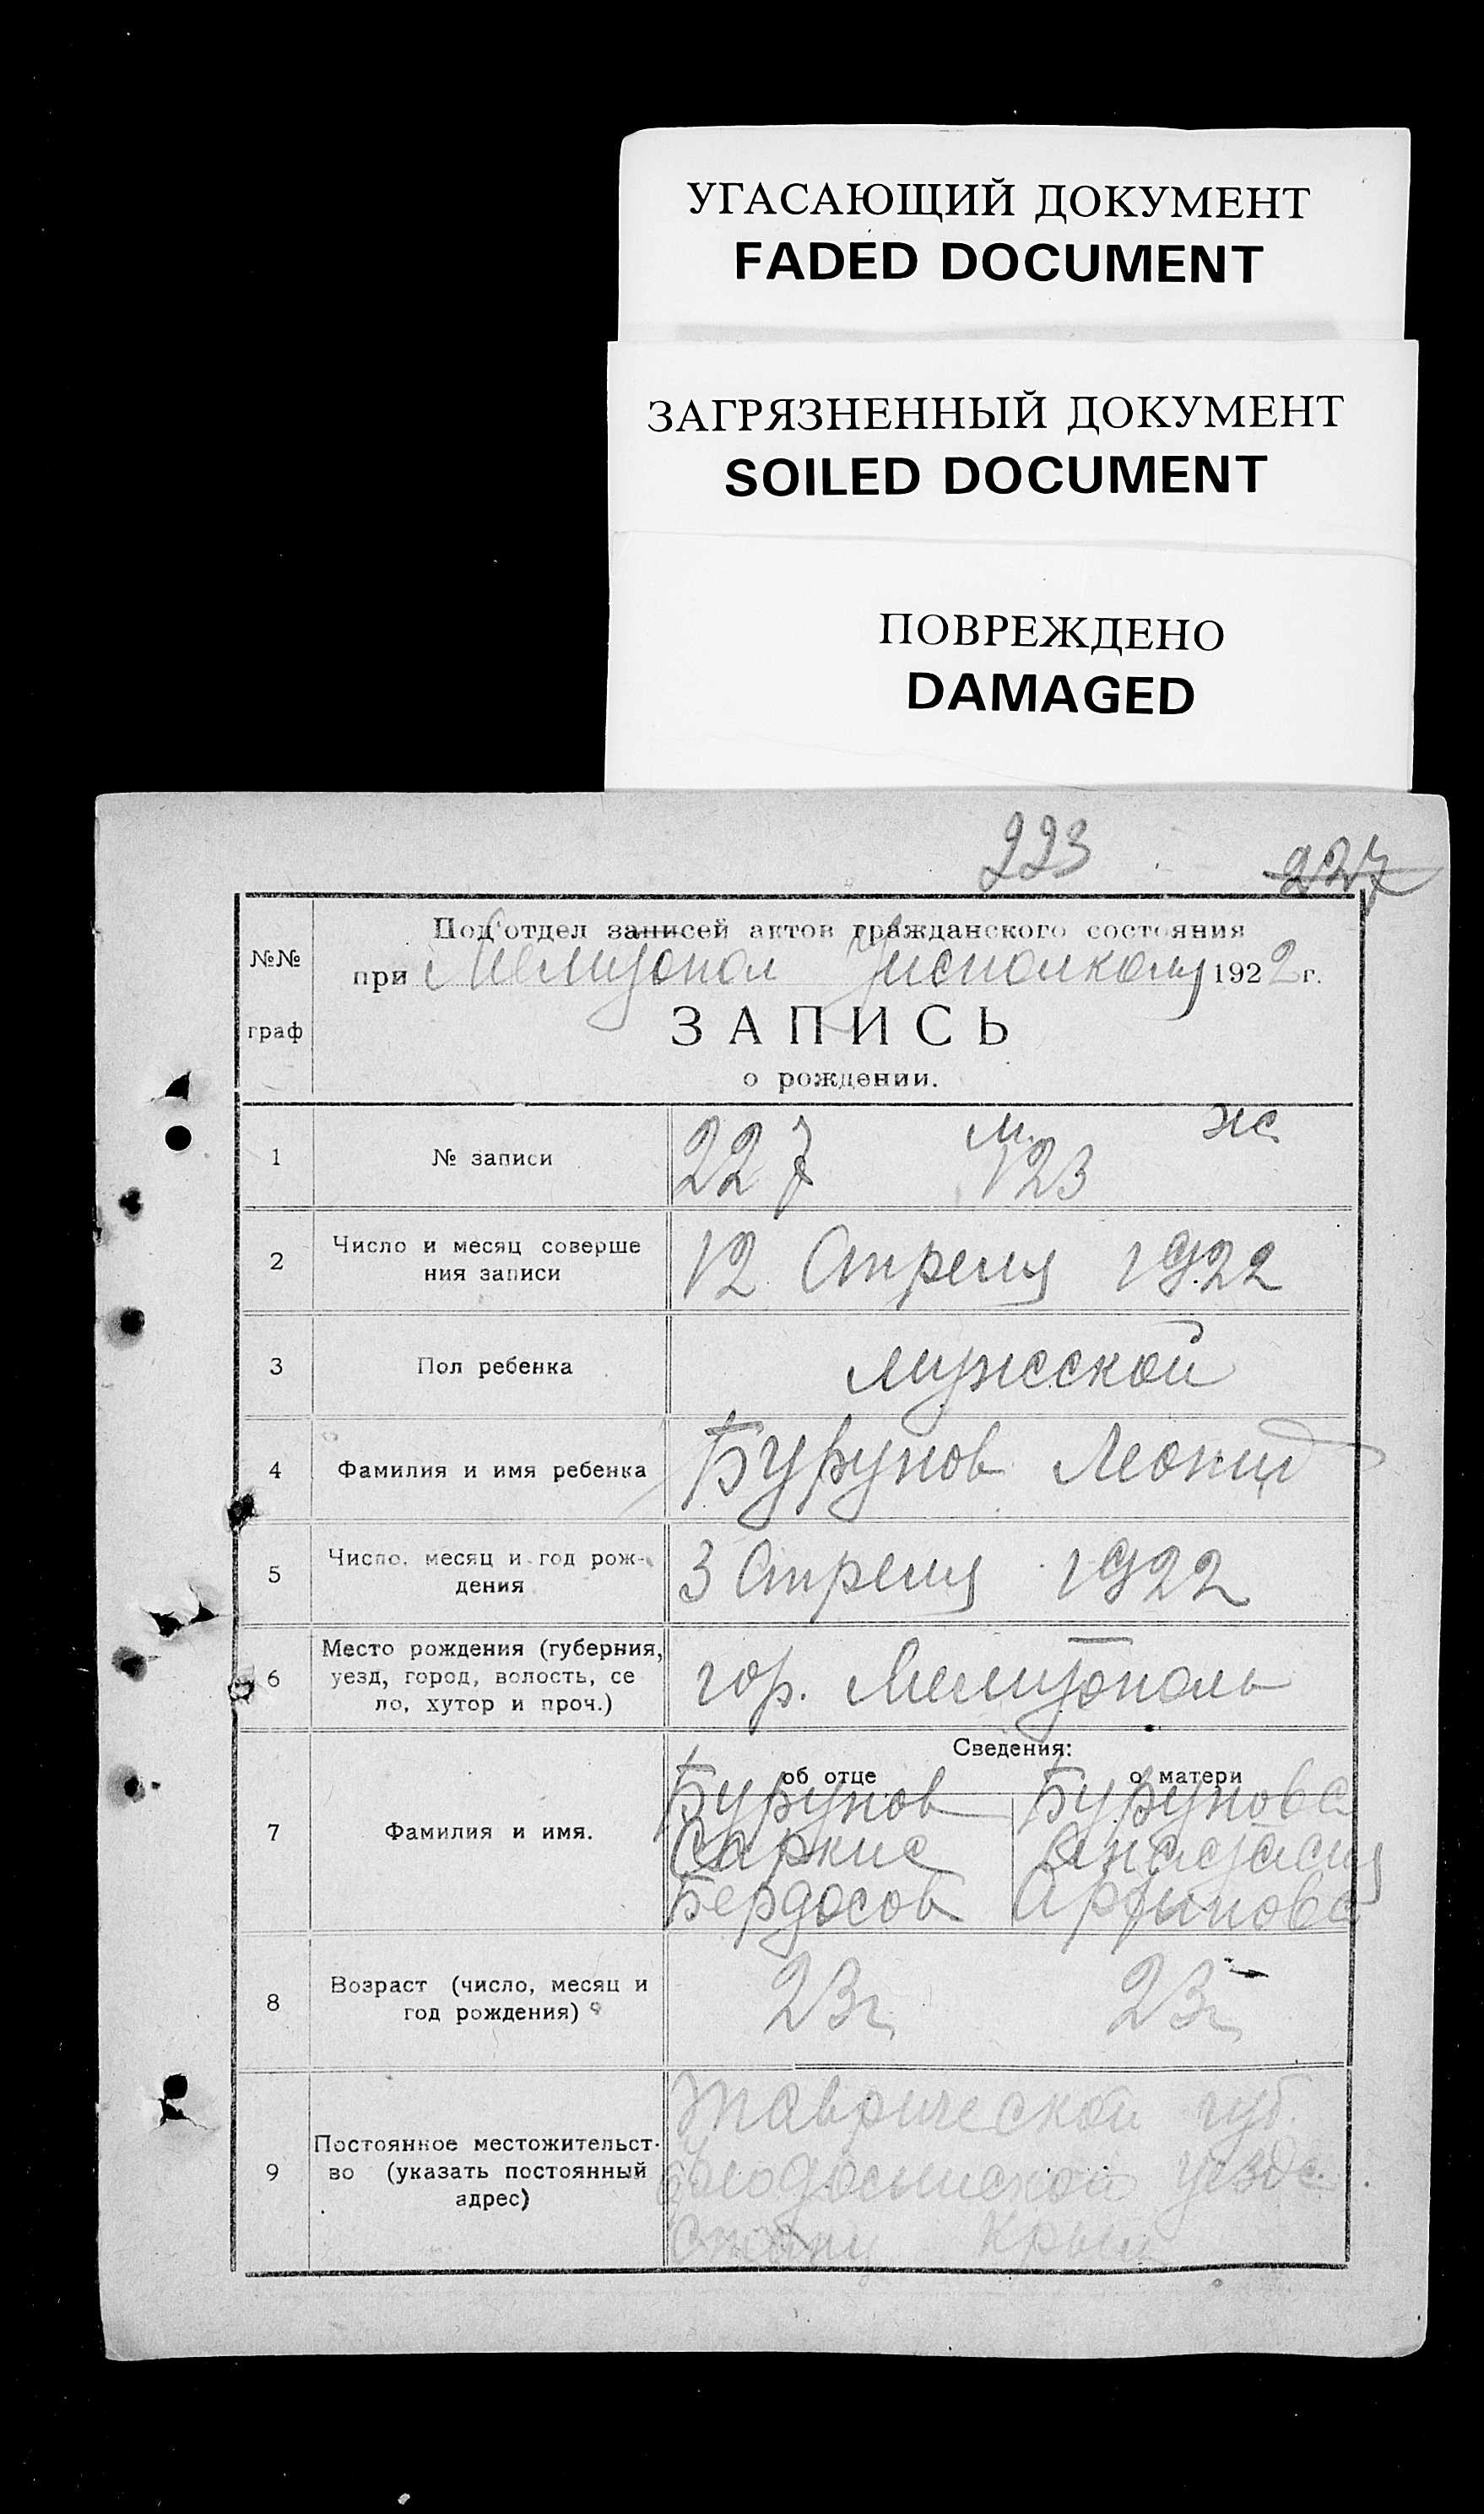 УГАСАЮЩИЙ ДОКУМЕНТ
FADED DOCUMENT
ЗАГРЯЗНЕННЫЙ ДОКУМЕНТ
SOILED DOCUMENT
ПОВРЕЖДЕНО
DAMAGED
223
227
№№
граф
Под'отдел записей актов гражданского состояния
при Мелитопол Уисполкому 1922 г.
ЗАПИСЬ
о рождении.
1 № записи 227 м. 123 ж
2 Число и месяц соверше
ния записи
12 Апреля 1922
3 Пол ребенка мужсской
4 Фамилия и имя ребенка Бурунов Леонид
5 Число, месяц и год рож-
дения
3 Апреля 1922
6 Место рождения (губерния,
уезд, город, волость, се
ло, хутор и проч.)
гор. Мелитополь
Сведения:
об отце о матери
7 Фамилия и имя.
Бурунов Бурунова
Саркис Анастасия
Бердосов
8 Возраст (число, месяц и
год рождения)
23 г 23 г
9 Постоянное местожительст-
во (указать постоянный
адрес)
Таврической губ.
уезда
Крым